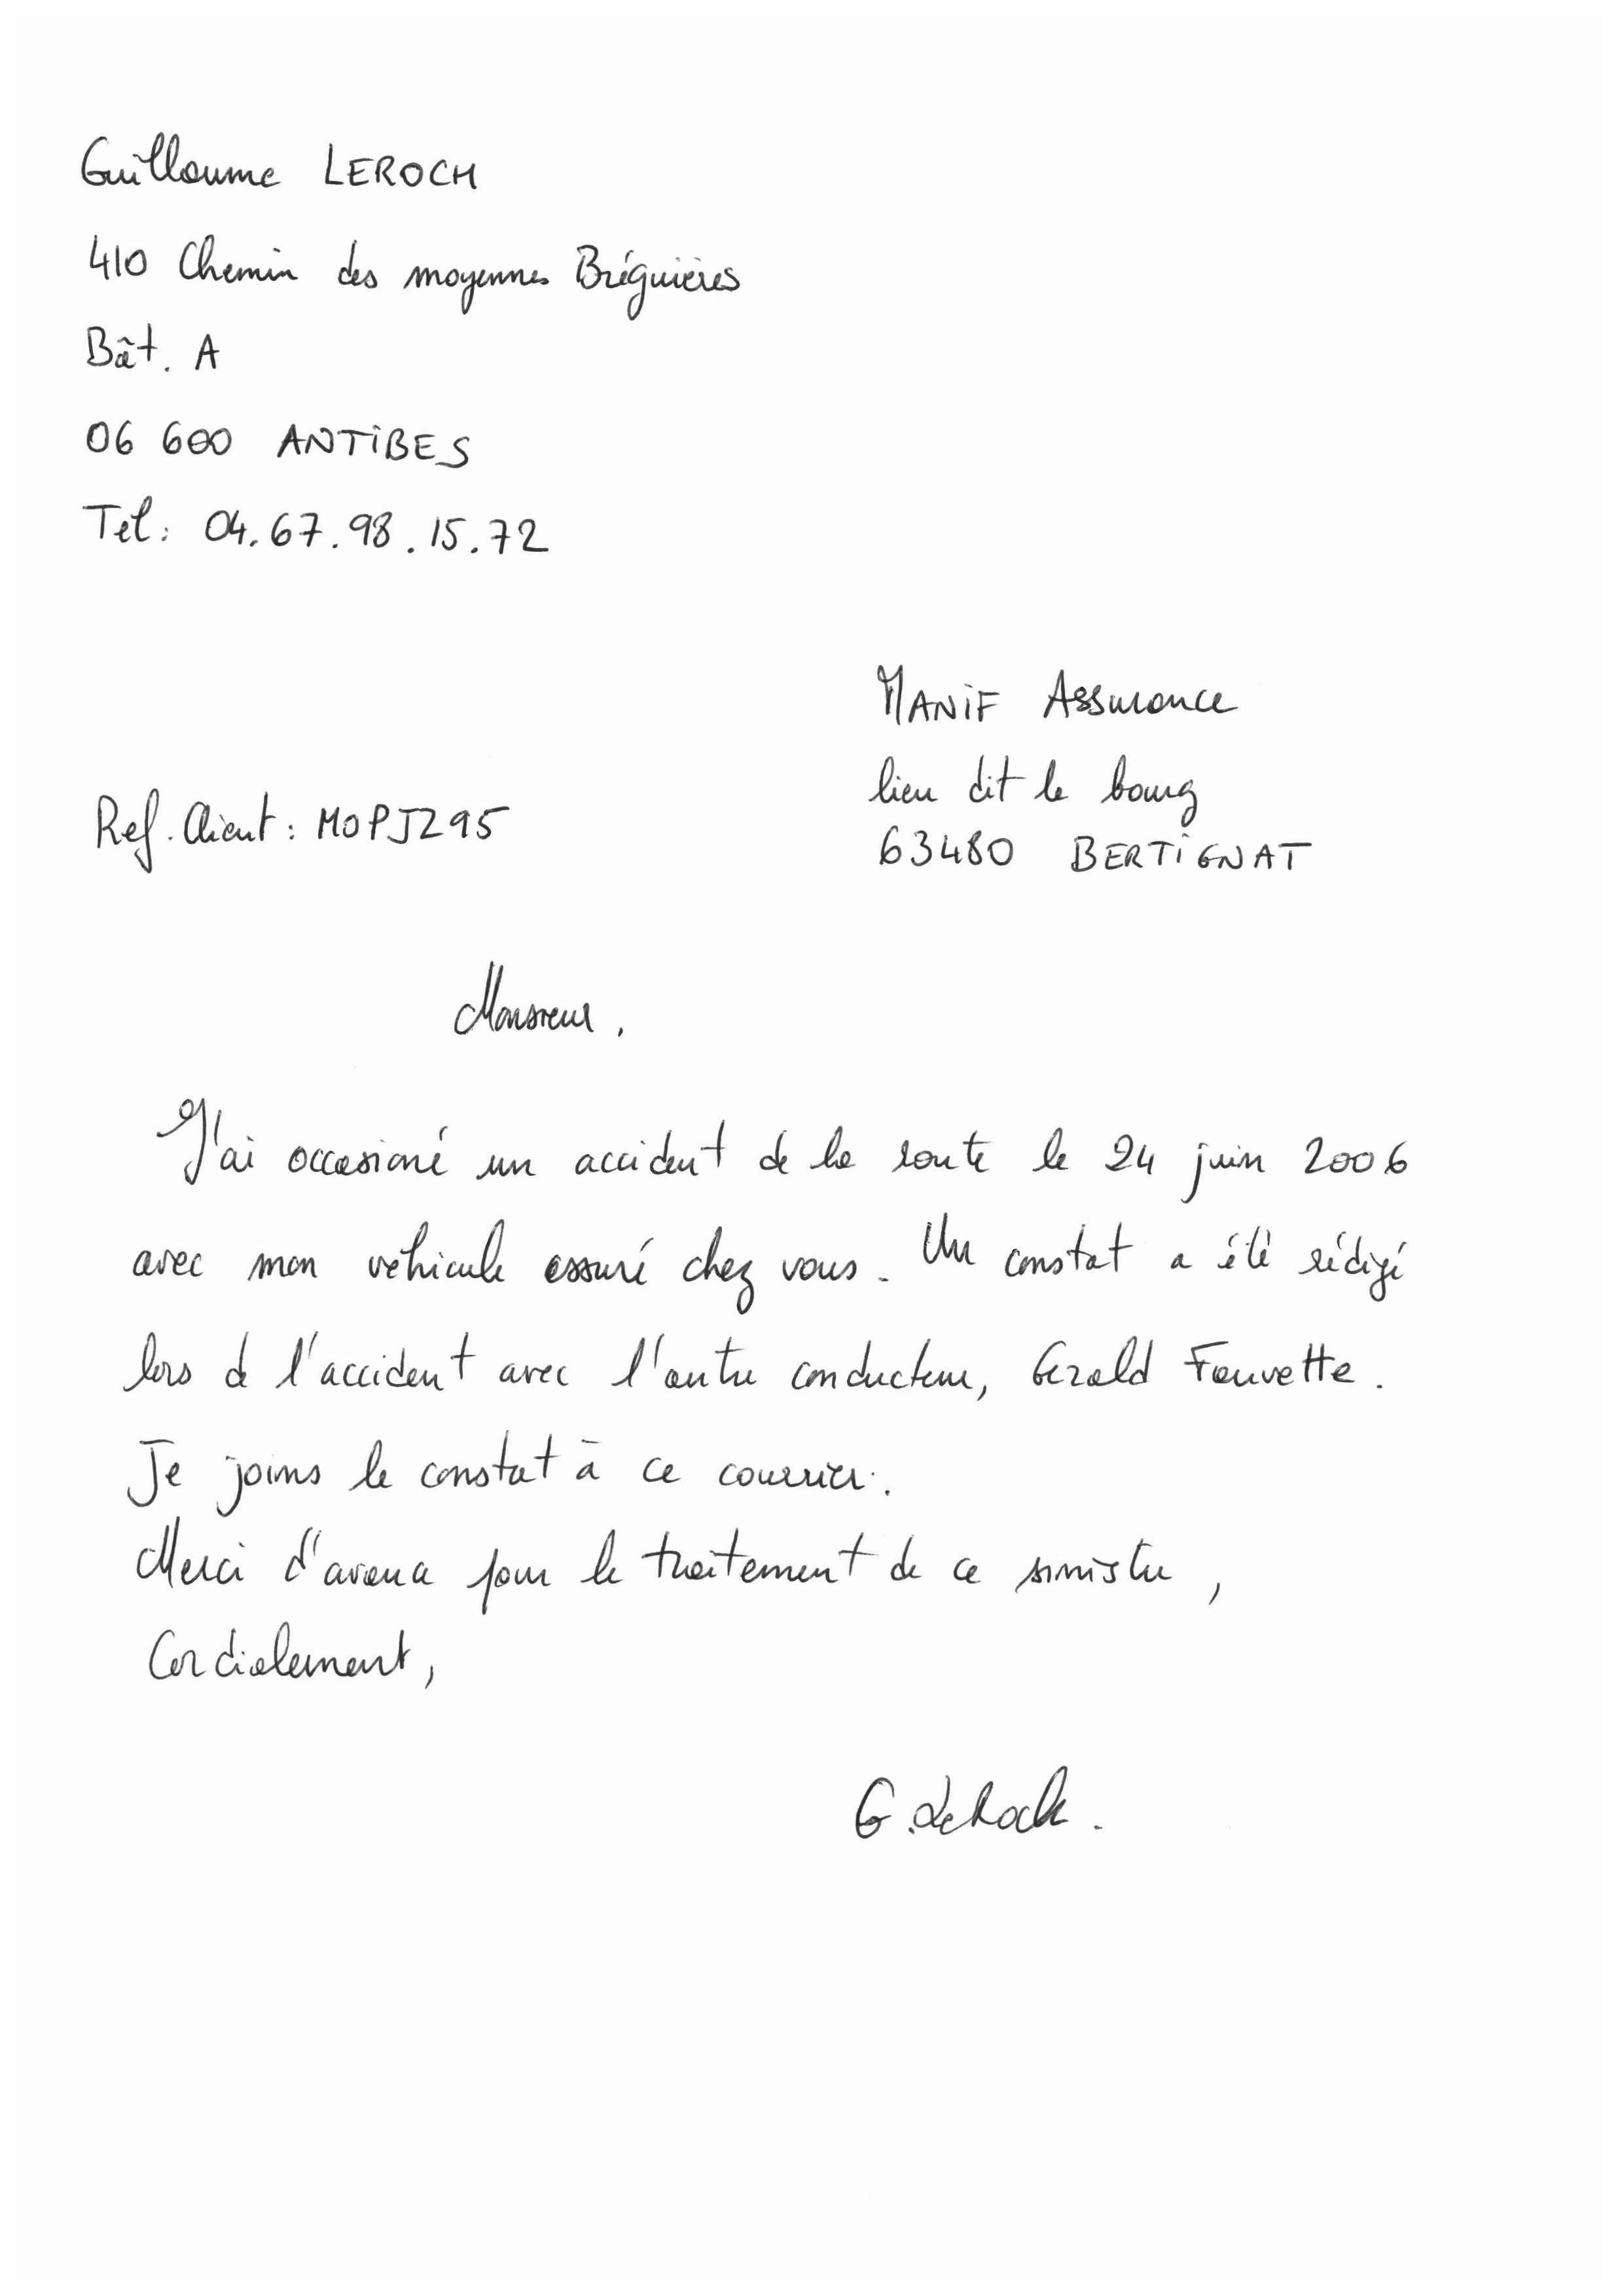 Guillaume LEROCH
410 Chemin des moyennes Bréguières
Bât. A
06 600 ANTIBES
Tel: 04.67.98.15.72
MANIF Assurance
lieu dit le bourg
Ref. Client : MOPJZ95
63480 BERTIGNAT
Monsieur,
J'ai occasioné un accident de la route le 24 juin 2006
avec mon véhicule assuré chez vous. Un constat a été rédigé
lors de l'accident avec l'autre conducteur, Gerald Fauvette.
Je joins le constat à ce courrier.
Merci d'avance pour le traitement de ce sinistre,
Cordialement,
G. LeRoch.